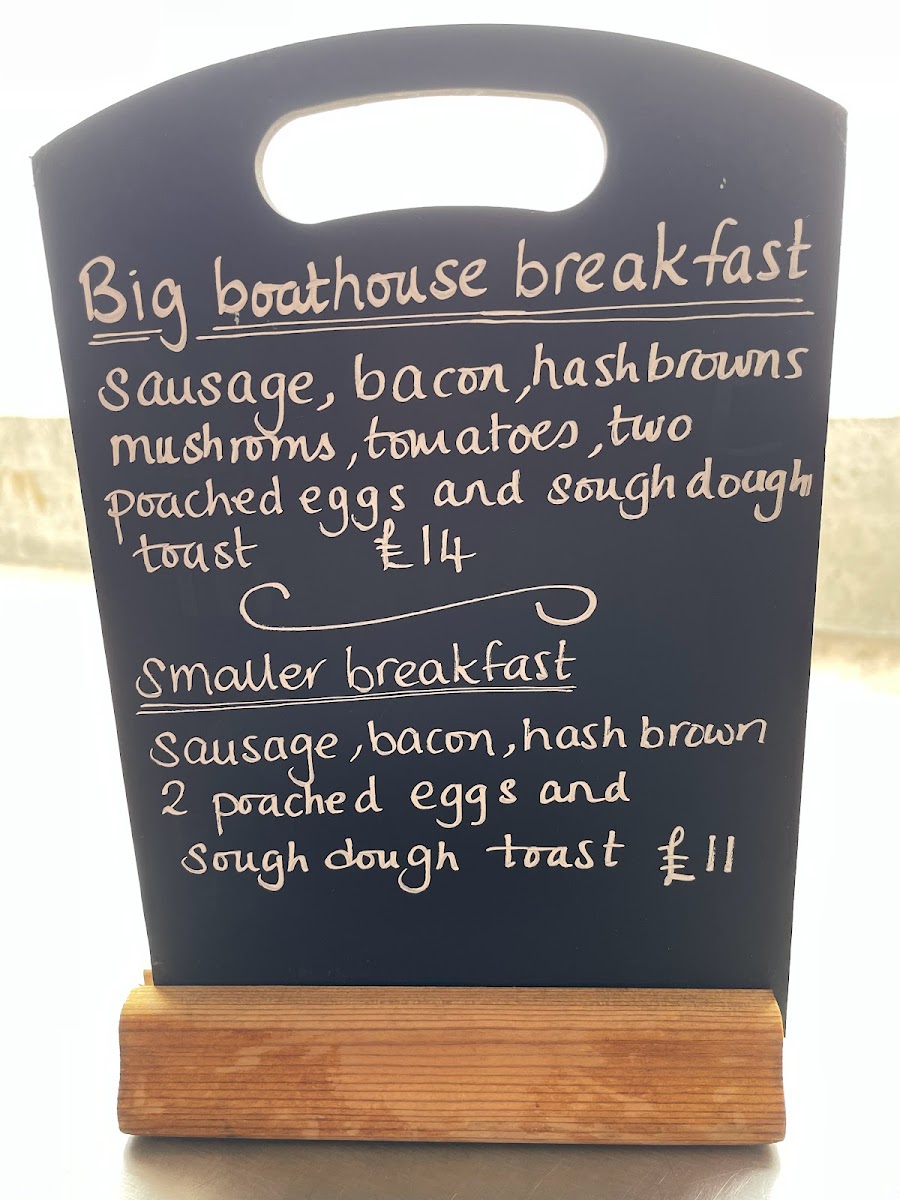 Big boathouse breakfast
sausage, bacon, hash browns
mushroms, tomatoes, two
poached eggs and sough dough
toast £14
Smaller breakfast
sausage, bacon, hash brown
2 poached eggs and
sough dough toast £11